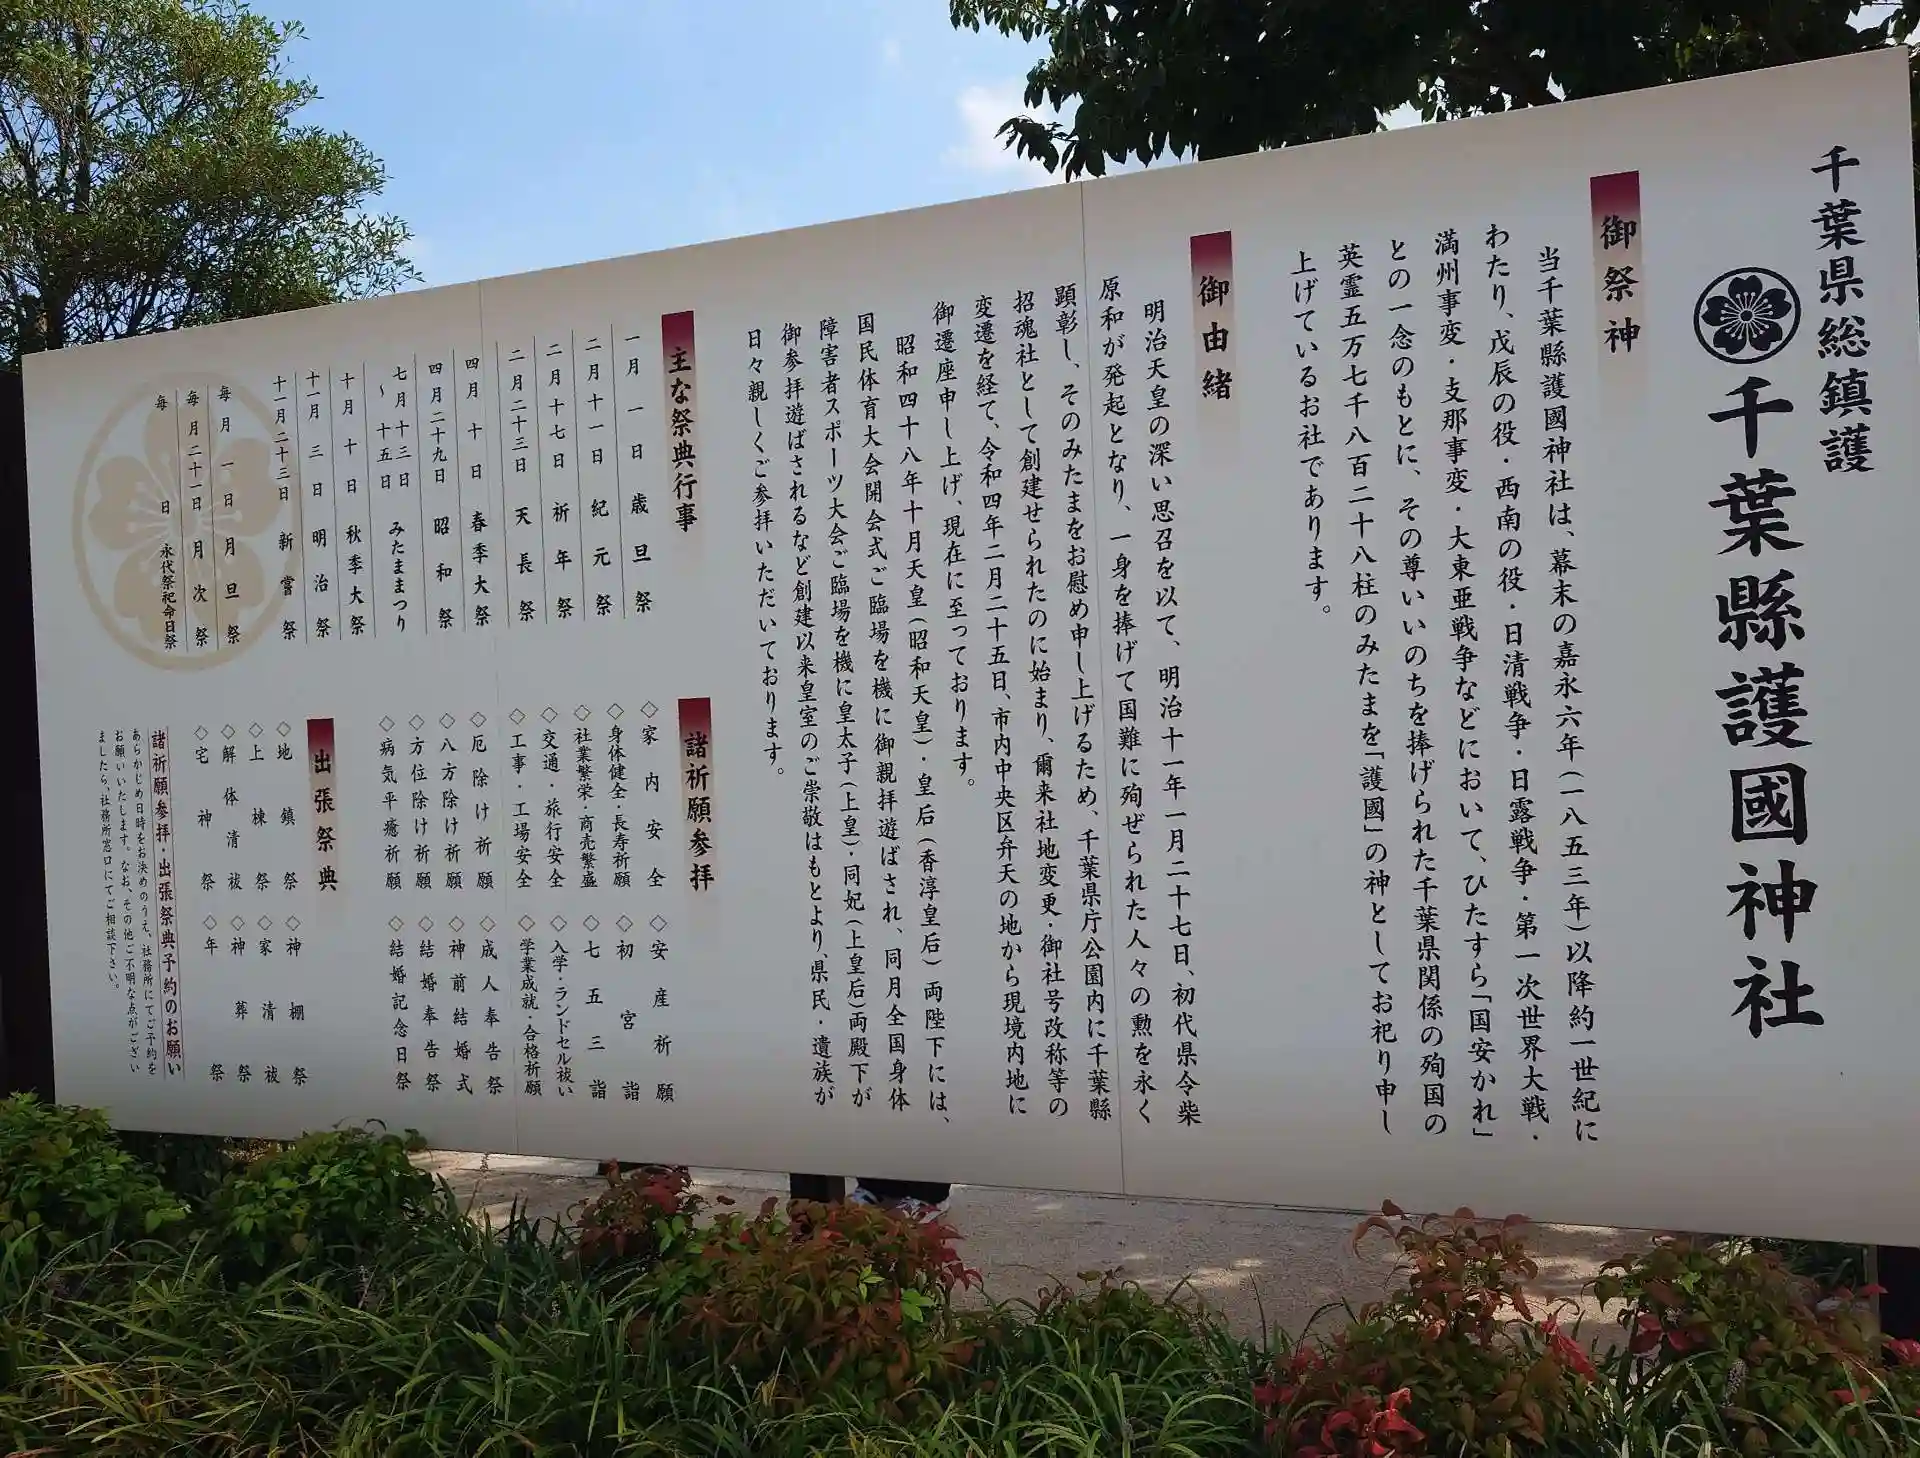 千葉県総鎮護
千葉縣護國神社
御祭神
当千葉縣護國神社は、幕末の嘉永六年(一八五三年)以降約一世紀に
わたり、戊辰の役・西南の役・日清戦争・日露戦争・第一次世界大戦・
満州事変・支那事変・大東亜戦争などにおいて、ひたすら「国安かれ」
との一念のもとに、その尊いいのちを捧げられた千葉県関係の殉国の
英霊五万七千八百二十八柱のみたまを「護國」の神としてお祀り申し
上げているお社であります。
御由緒
明治天皇の深い思召を以て、明治十一年一月二十七日、初代県令柴
原和が発起となり、一身を捧げて国難に殉ぜられた人々の勲を永く
顕彰し、そのみたまをお慰め申し上げるため、千葉県庁公園内に千葉縣
招魂社として創建せられたのに始まり、爾来社地変更・御社号改称等の
変遷を経て、令和四年二月二十五日、市内中央区弁天の地から現境内地に
御遷座申し上げ、現在に至っております。
昭和四十八年十月天皇(昭和天皇)・皇后(香淳皇后)両陛下には、
国民体育大会開会式ご臨場を機に御親拝遊ばされ、同月全国身体
障害者スポーツ大会ご臨場を機に皇太子(上皇)・同妃(上皇后)両殿下が
御参拝遊ばされるなど創建以来皇室のご崇敬はもとより、県民・遺族が
日々親しくご参拝いただいております。
主な祭典行事
一月一日 歳旦祭
二月十一日 紀元祭
二月十七日 祈年祭
二月二十三日 天長祭
四月十日 春季大祭
四月二十九日 昭和祭
七月十三日
~十五日 みたままつり
十月十日 秋季大祭
十一月三日 明治祭
十一月二十三日 新嘗祭
毎月一日 月旦祭
毎月二十一日 月次祭
毎日 永代祭祀命日祭
諸祈願参拝
◇家内安全
◇身体健全・長寿祈願
◇社業繁栄・商売繁盛
◇交通・旅行安全
◇工事・工場安全
◇厄除け祈願
◇八方除け祈願
◇方位除け祈願
◇病気平癒祈願
◇安産祈願
◇初宮詣
◇七五三詣
◇入学・ランドセル祓い
◇学業成就・合格祈願
◇成人奉告祭
◇神前結婚式
◇結婚奉告祭
◇結婚記念日祭
出張祭典
◇地鎮祭
◇上棟祭
◇解体清祓
◇宅神祭
◇神棚祭
◇家清祓
◇神葬祭
◇年祭
諸祈願参拝・出張祭典予約のお願い
あらかじめ日時をお決めのうえ、社務所にてご予約を
お願いいたします。なお、その他ご不明な点がござい
ましたら、社務所窓口にてご相談下さい。